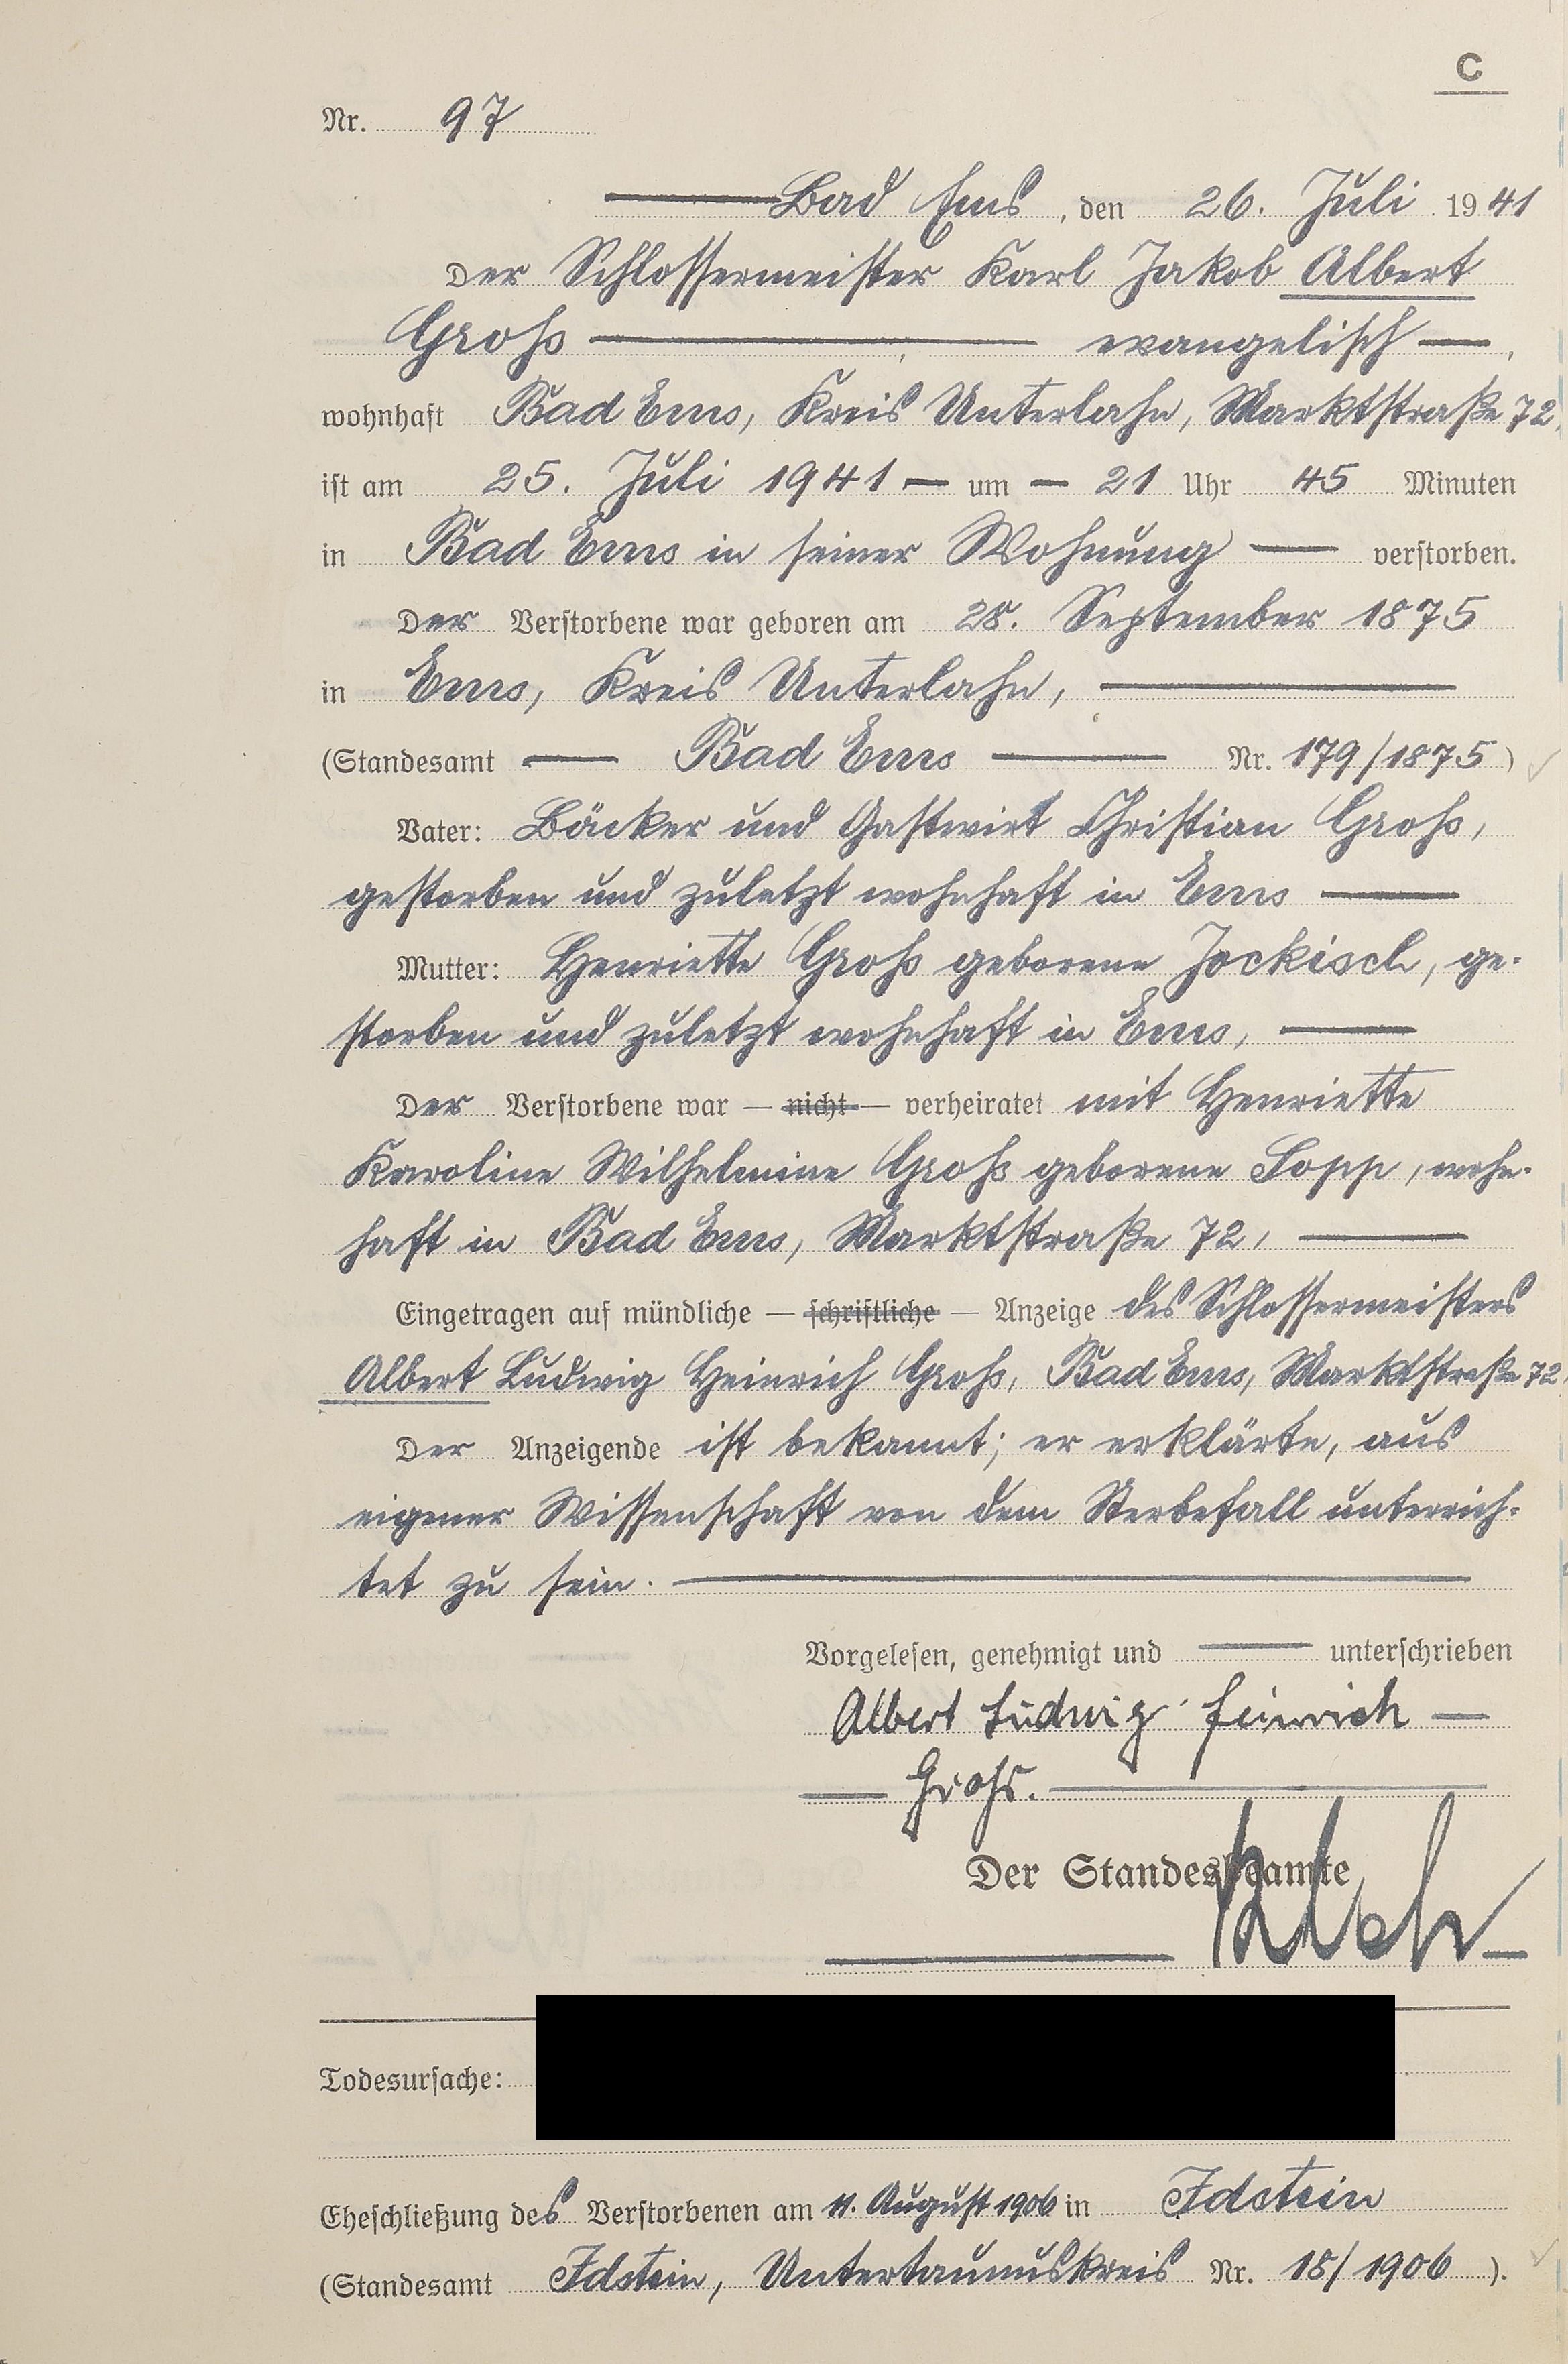 C
Nr. 97
Bad Ems, den 26. Juli 1941
Der Schlossermeister Karl Jakob Albert
Groß evangelisch,
wohnhaft Bad Ems, Kreis Unterlahn, Marktstraße 72,
ist am 25. Juli 1941 um 21 Uhr 45 Minuten
in Bad Ems in seiner Wohnung verstorben.
Der Verstorbene war geboren am 28. September 1875
in Ems, Kreis Unterlahn,
(Standesamt Bad Ems Nr. 179/1875)
Vater: Bäcker und Gastwirt Christian Groß,
gestorben und zuletzt wohnhaft in Ems
Mutter: Henriette Groß geborene Jockisch, ge-
storben und zuletzt wohnhaft in Ems,
Der Verstorbene war — nicht — verheiratet mit Henriette
Karoline Wilhelmine Groß geborene Sopp, wohn-
haft in Bad Ems, Marktstraße 72,
Eingetragen auf mündliche — schriftliche — Anzeige des Schlossermeisters
Albert Ludwig Heinrich Groß, Bad Ems, Marktstraße 72.
Der Anzeigende ist bekannt; er erklärte, aus
eigener Wissenschaft von dem Sterbefall unterrich-
tet zu sein.
Vorgelesen, genehmigt und unterschrieben
Albert Ludwig Heinrich
Groß.
Der Standesbeamte
Todesursache:
Eheschließung des Verstorbenen am 11. August 1906 in Idstein
(Standesamt Idstein, Untertaunuskreis Nr. 18/1906).